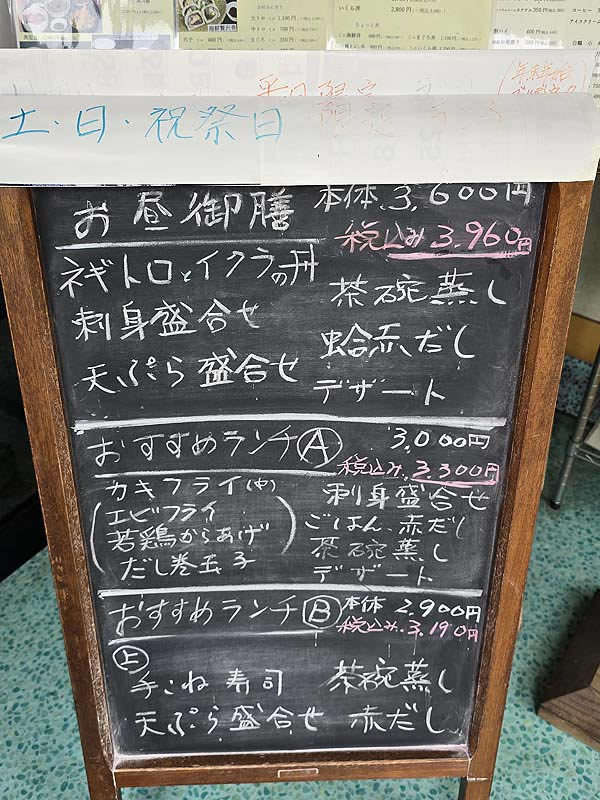 土・日・祝祭日
お昼御膳 本体 3,600円
税込み 3,960円
ネギトロとイクラの丼 茶碗蒸し
刺身盛合せ 蛤赤だし
天ぷら盛合せ デザート
おすすめランチ Ⓐ 3,000円
税込み 3,300円
カキフライ(中) 刺身盛合せ
エビフライ ごはん、赤だし
若鶏からあげ 茶碗蒸し
だし巻玉子 デザート
おすすめランチ Ⓑ 本体 2,900円
税込み 3,190円
上
手こね寿司 茶碗蒸し
天ぷら盛合せ 赤だし